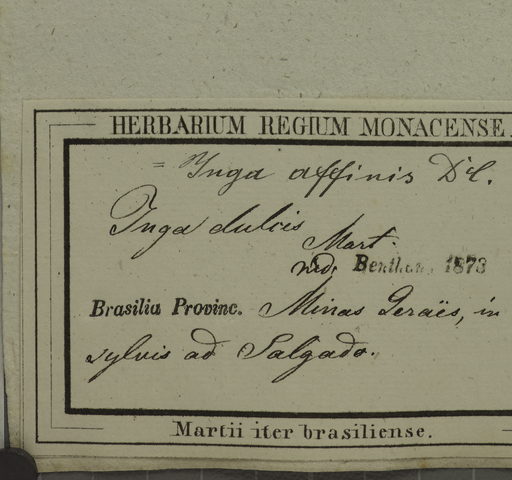 HERBARIUM REGIUM MONACENSE.
= Inga affinis DC.
Inga dulcis
Mart.
Bentham, 1873
Brasilia Provinc. Minas Geraës, in
sylvis ad Salgado.
Martii iter brasiliense.